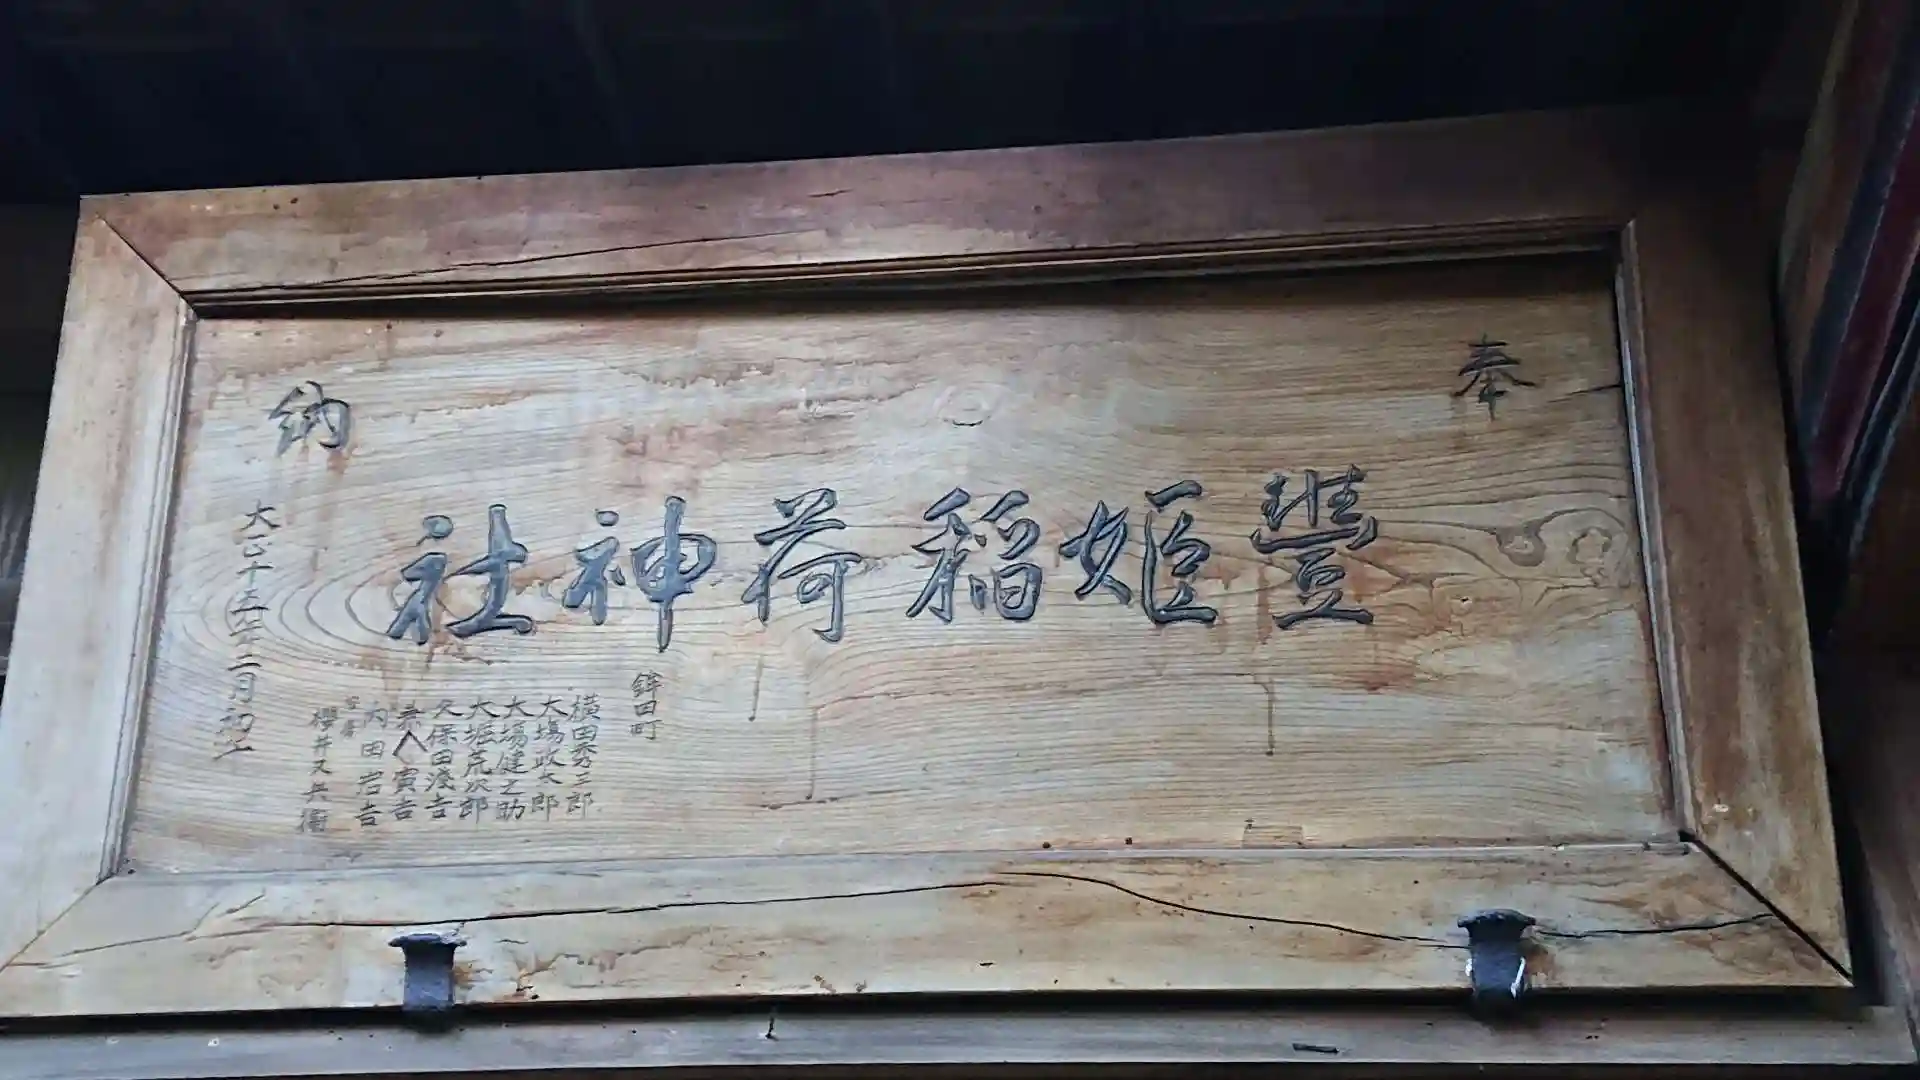 奉
豐姫稲荷神社
納
鉾田町
横田秀三郎
大場政太郎
大場健之助
大堀荒次郎
久保田淺吉
寅吉
内田岩吉
櫻井又兵衞
大正十五年二月初午